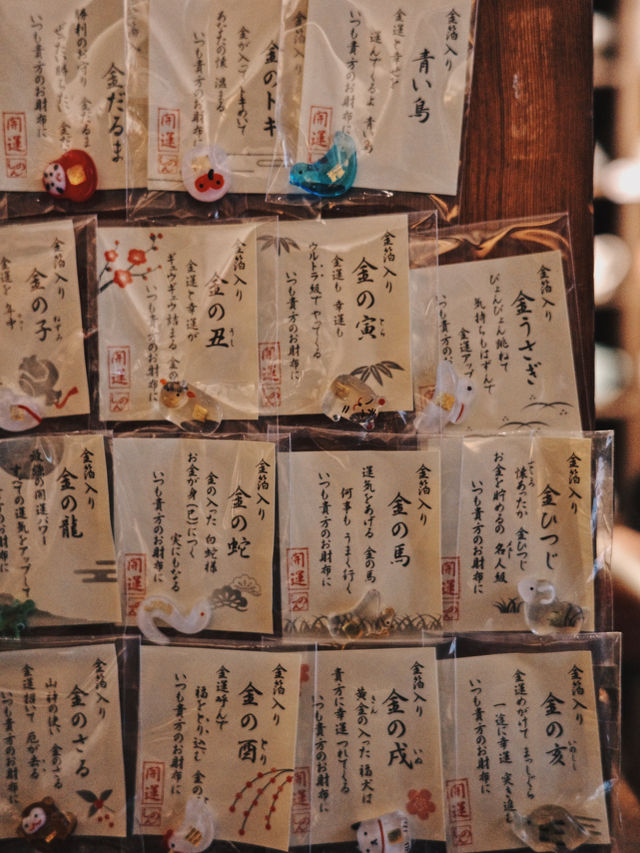 金だるま
勝利のお守り 金だるま
ぜったい勝ちたい 金だ
いつも貴方のお財布に
開運
金のトキ
金が入ってトキめいて
あなたの懐 温まる
いつも貴方のお財布に
開運
金箔入り
青い鳥
金運と幸せと
運んでくるよ 青い鳥
いつも貴方のお財布に
開運
金箔入り
金の子
ねずみ
金運を 年中
金箔入り
金の丑
うし
金運と幸運が
ギュウギュウ詰まる 金の
いつも貴方のお財布に
開運
金箔入り
金の寅
とら
金運も 幸運も
ウルトラ級で やってくる
いつも貴方のお財布に
開運
金箔入り
金うさぎ
ぴょんぴょん跳ねて
気持ちもはずんで
金運アップ
いつも貴方のお
金箔入り
金の龍
の開運パワー
すべての運気をアップして
金箔入り
金の蛇
金の入った 白蛇様
お金が身(巳)につく
実にもなる
いつも貴方のお財布に
開運
金箔入り
金の馬
運気をあげる 金の馬
何事も うまく行く
いつも貴方のお財布に
開運
金箔入り
金ひつじ
懐あったか 金ひつじ
お金を貯めるの 名人級
いつも貴方のお財布に
開運
金箔入り
金のさる
山神の使い 金のさる
金運招いて 厄が去る
いつも貴方のお財布に
金箔入り
金の酉
とり
金運呼んで
福をとり込む 金の
いつも貴方のお財布に
開運
金箔入り
金の戌
いぬ
黄金の入った 福犬は
貴方に幸運 つれてくる
いつも貴方のお財布に
開運
金箔入り
金の亥
いのしし
金運めがけて まっしぐら
一途に幸運 突き進む
いつも貴方のお財布に
開運